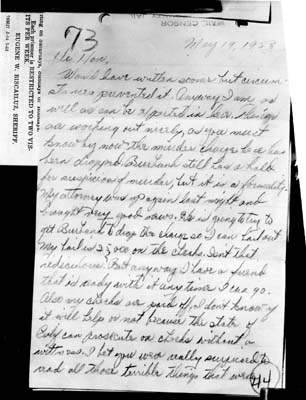 MAIL CENSOR
Each prisoner is RESTRICTED TO TWO VIS-
ITS PER WEEK.
EUGENE W. BISCAILUZ, SHERIFF.
73
May 19, 1953
Hi Hon,
Would have written sooner but circum-
stances prevented it. Anyway I am as
well as can be expected in here. Things
are working out nicely, as you must
know by now the murder charge here has
been dropped. Burbank still has a hold
for suspicion of murder, but it is a formality.
My attorney was up again last night and
brought very good news. He is going to try to
get Burbank to drop the charge, so I can bail out
My bail is 2,000 on the checks. Isnt that
rediculous. But anyway I have a friend
that is ready with it any time I can go.
Also my checks are paid off, I dont know if
it will help or not because the state of
Calif can prosecute on checks without a
witness. I bet you were really surprised to
read all those terrible things that were